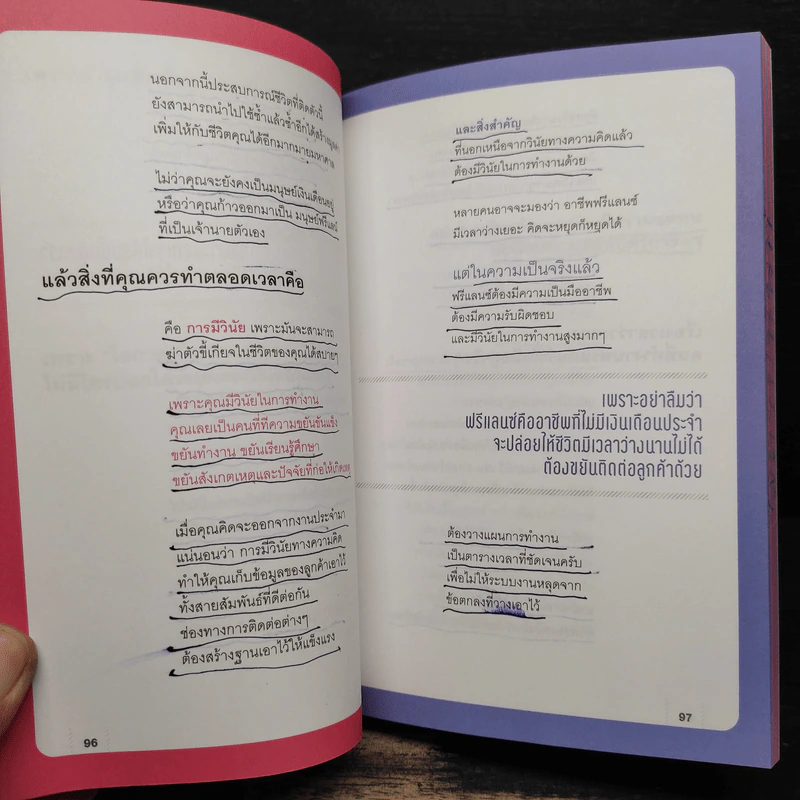 นอกจากนี้ประสบการณ์ชีวิตที่ติดตัวนี้
ยังสามารถนำไปใช้ซ้ำแล้วซ้ำอีกได้สร้าง
เพิ่มให้กับชีวิตคุณได้อีกมากมายมหาศาล
ไม่ว่าคุณจะยังคงเป็นมนุษย์เงินเดือนอยู่
หรือว่าคุณก้าวออกมาเป็น มนุษย์ฟรีแลนซ์
ที่เป็นเจ้านายตัวเอง
แล้วสิ่งที่คุณควรทำตลอดเวลาคือ
คือ การมีวินัย เพราะมันจะสามารถ
ฆ่าตัวขี้เกียจในชีวิตของคุณได้สบายๆ
เพราะคุณมีวินัยในการทำงาน
คุณเลยเป็นคนที่ที่ความขยันขันแข็ง
ขยันทำงาน ขยันเรียนรู้ศึกษา
ขยันสังเกตเหตุและปัจจัยที่ก่อให้เกิดเหตุ
เมื่อคุณคิดจะออกจากงานประจำมา
แน่นอนว่า การมีวินัยทางความคิด
ทำให้คุณเก็บข้อมูลของลูกค้าเอาไว้
ทั้งสายสัมพันธ์ที่ดีต่อกัน
ช่องทางการติดต่อต่างๆ
ต้องสร้างฐานเอาไว้ให้แข็งแรง
96
และสิ่งสำคัญ
ที่นอกเหนือจากวินัยทางความคิดแล้ว
ต้องมีวินัยในการทำงานด้วย
หลายคนอาจจะมองว่า อาชีพฟรีแลนซ์
มีเวลาว่างเยอะ คิดจะหยุดก็หยุดได้
แต่ในความเป็นจริงแล้ว
ฟรีแลนซ์ต้องมีความเป็นมืออาชีพ
ต้องมีความรับผิดชอบ
และมีวินัยในการทำงานสูงมากๆ
เพราะอย่าลืมว่า
ฟรีแลนซ์คืออาชีพที่ไม่มีเงินเดือนประจำ
จะปล่อยให้ชีวิตมีเวลาว่างนานไม่ได้
ต้องขยันติดต่อลูกค้าด้วย
ต้องวางแผนการทำงาน
เป็นตารางเวลาที่ชัดเจนครับ
เพื่อไม่ให้ระบบงานหลุดจาก
ข้อตกลงที่วางเอาไว้
97